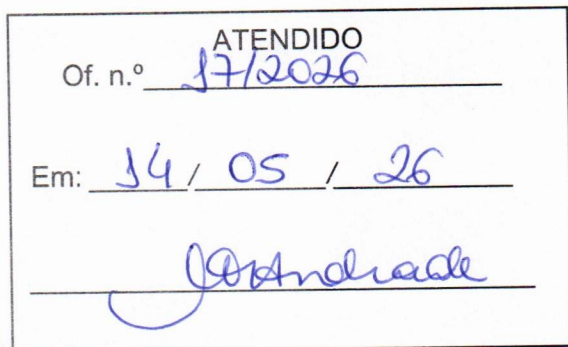 ATENDIDO
Of. n.º 17/2026
Em: 14 / 05 / 26
Andrade